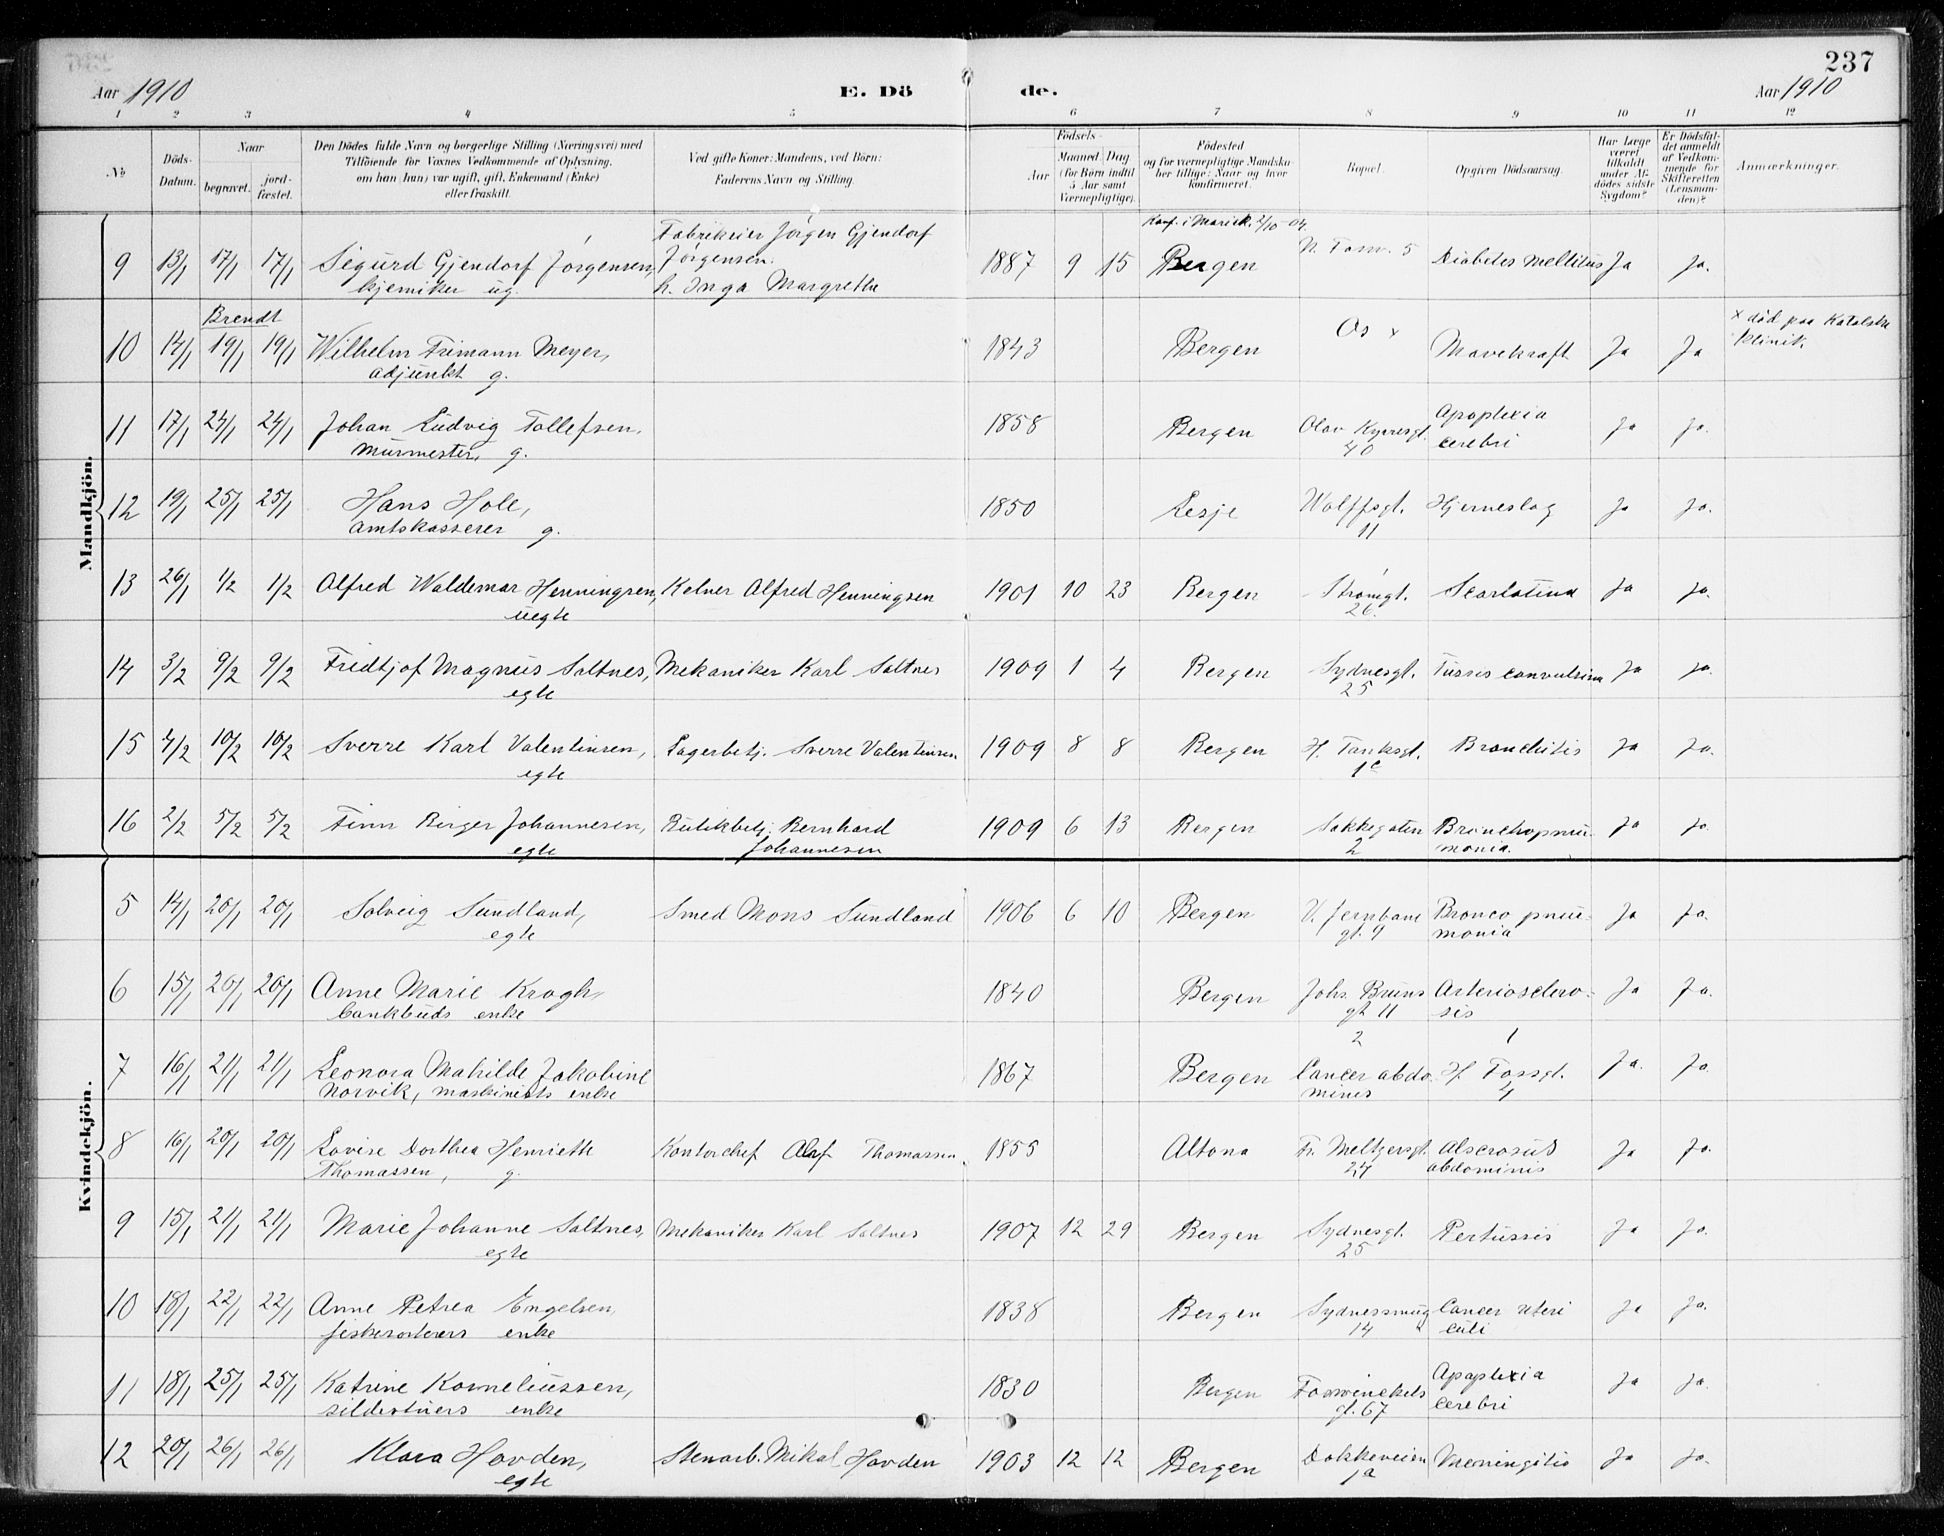 237
Aar 1910 E. Dö de. Aar 1910
1 2 3 4 5 6 7 8 9 10 11 12
№ Döds-Datum. Naar begravet. jordfæstet. Den Dödes fulde Navn og borgerlige Stilling (Næringsvei) med Tilföiende for Voxnes Vedkommende af Oplysning, om han (hun) var ugift, gift, Enkemand (Enke) eller fraskilt. Ved gifte Koner: Mandens, ved Börn: Faderens Navn og Stilling. Födsels- Aar Maaned Dag (for Börn indtil 5 Aar samt Værnepligtige). Födested og for værnepligtige Mandskaber tillige: Naar og hvor konfirmeret. Bopæl. Opgiven Dödsaarsag. Har Læge været tilkaldt under Afdödes sidste Sygdom? Er Dödsfaldet anmeldt af Vedkommende for Skifteretten (Lensmanden)? Anmærkninger.
Mandkjön.
9 13/1 17/1 17/1 Sigurd Gjendorf Jörgensen, kjemiker ug. Fabrikeier Jörgen Gjendorf Jörgensen. h. Inga Margrethe 1887 9 15 Konf. i Mariek. 2/10-04. Bergen N. Fosw. 5 Diabetes mellitus Ja Ja.
10 14/1 Brendt 19/1 19/1 Wilhelm Frimann Meyer, adjunkt g. 1843 Bergen Os x Mavekræft Ja Ja x död paa Katolske klinik.
11 17/1 24/1 24/1 Johan Ludvig Tollefsen, murmester, g. 1858 Bergen Olav Kyrresgt. 40 Apoplexia cerebri Ja Ja.
12 19/1 25/1 25/1 Hans Hole, amtskasserer g. 1850 Lesje Wolffsgt. 11 Hjerneslag Ja Ja.
13 26/1 1/2 1/2 Alfred Waldemar Henningsen, uegte Kelner Alfred Henningsen 1901 10 23 Bergen Strömgt. 26. Scarlatina Ja Ja.
14 3/2 9/2 9/2 Fredtjof Magnus Saltnes, egte Mekaniker Karl Saltnes 1909 1 4 Bergen Sydnesgt. 25 Tussis convulsiva Ja Ja.
15 4/2 10/2 10/2 Sverre Karl Valentinsen, egte Lagerbetj. Sverre Valentinsen 1909 8 8 Bergen H. Tanksgt. 1c Bronchitis Ja Ja.
16 2/2 5/2 5/2 Finn Birger Johannesen, egte Butikbetj. Bernhard Johannesen 1909 6 13 Bergen Sakkegaten 2 Bronchopneumonia. Ja Ja.
Kvindekjön.
5 14/1 20/1 20/1 Solveig Sundland, egte Smed Mons Sundland 1906 6 10 Bergen V. Jernbanegt. 9 Bronco pneumonia Ja Ja.
6 15/1 20/1 20/1 Anne Marie Krogh, bankbuds enke 1840 Bergen Johs. Brunsgt 11 Arteriosclerosis Ja Ja.
7 16/1 21/1 21/1 Leonora Mathilde Jakobine Norvik, maskinists enke 1867 Bergen 2 Cancer abdominis 1 H. Fossgt. 4 Ja. Ja.
8 16/1 20/1 20/1 Lovise Dorthea Henriette Thomassen, g. Kontorchef Olaf Thomassen. 1855 Altona Fr. Meltzersgt 24 abdominis Ja Ja.
9 15/1 21/1 21/1 Marie Johanne Saltnes, egte Mekaniker Karl Saltnes 1907 12 29 Bergen Sydnesgt. 25 Pertussis Ja Ja.
10 18/1 22/1 22/1 Anne Petrea Engelsen, enke 1838 Bergen Sydnessmug 14 Cancer uteri culi Ja Ja.
11 18/1 25/1 25/1 Katrine Korneliussen, sildestuers enke 1830 Bergen Fosswinckelsgt. 67 Apoplexia cerebri Ja Ja.
12 20/1 26/1 26/1 Klara Hovden, egte Stenarb. Mikal Hovden 1903 12 12 Bergen Dokkeveien 1a Meningitis Ja Ja.